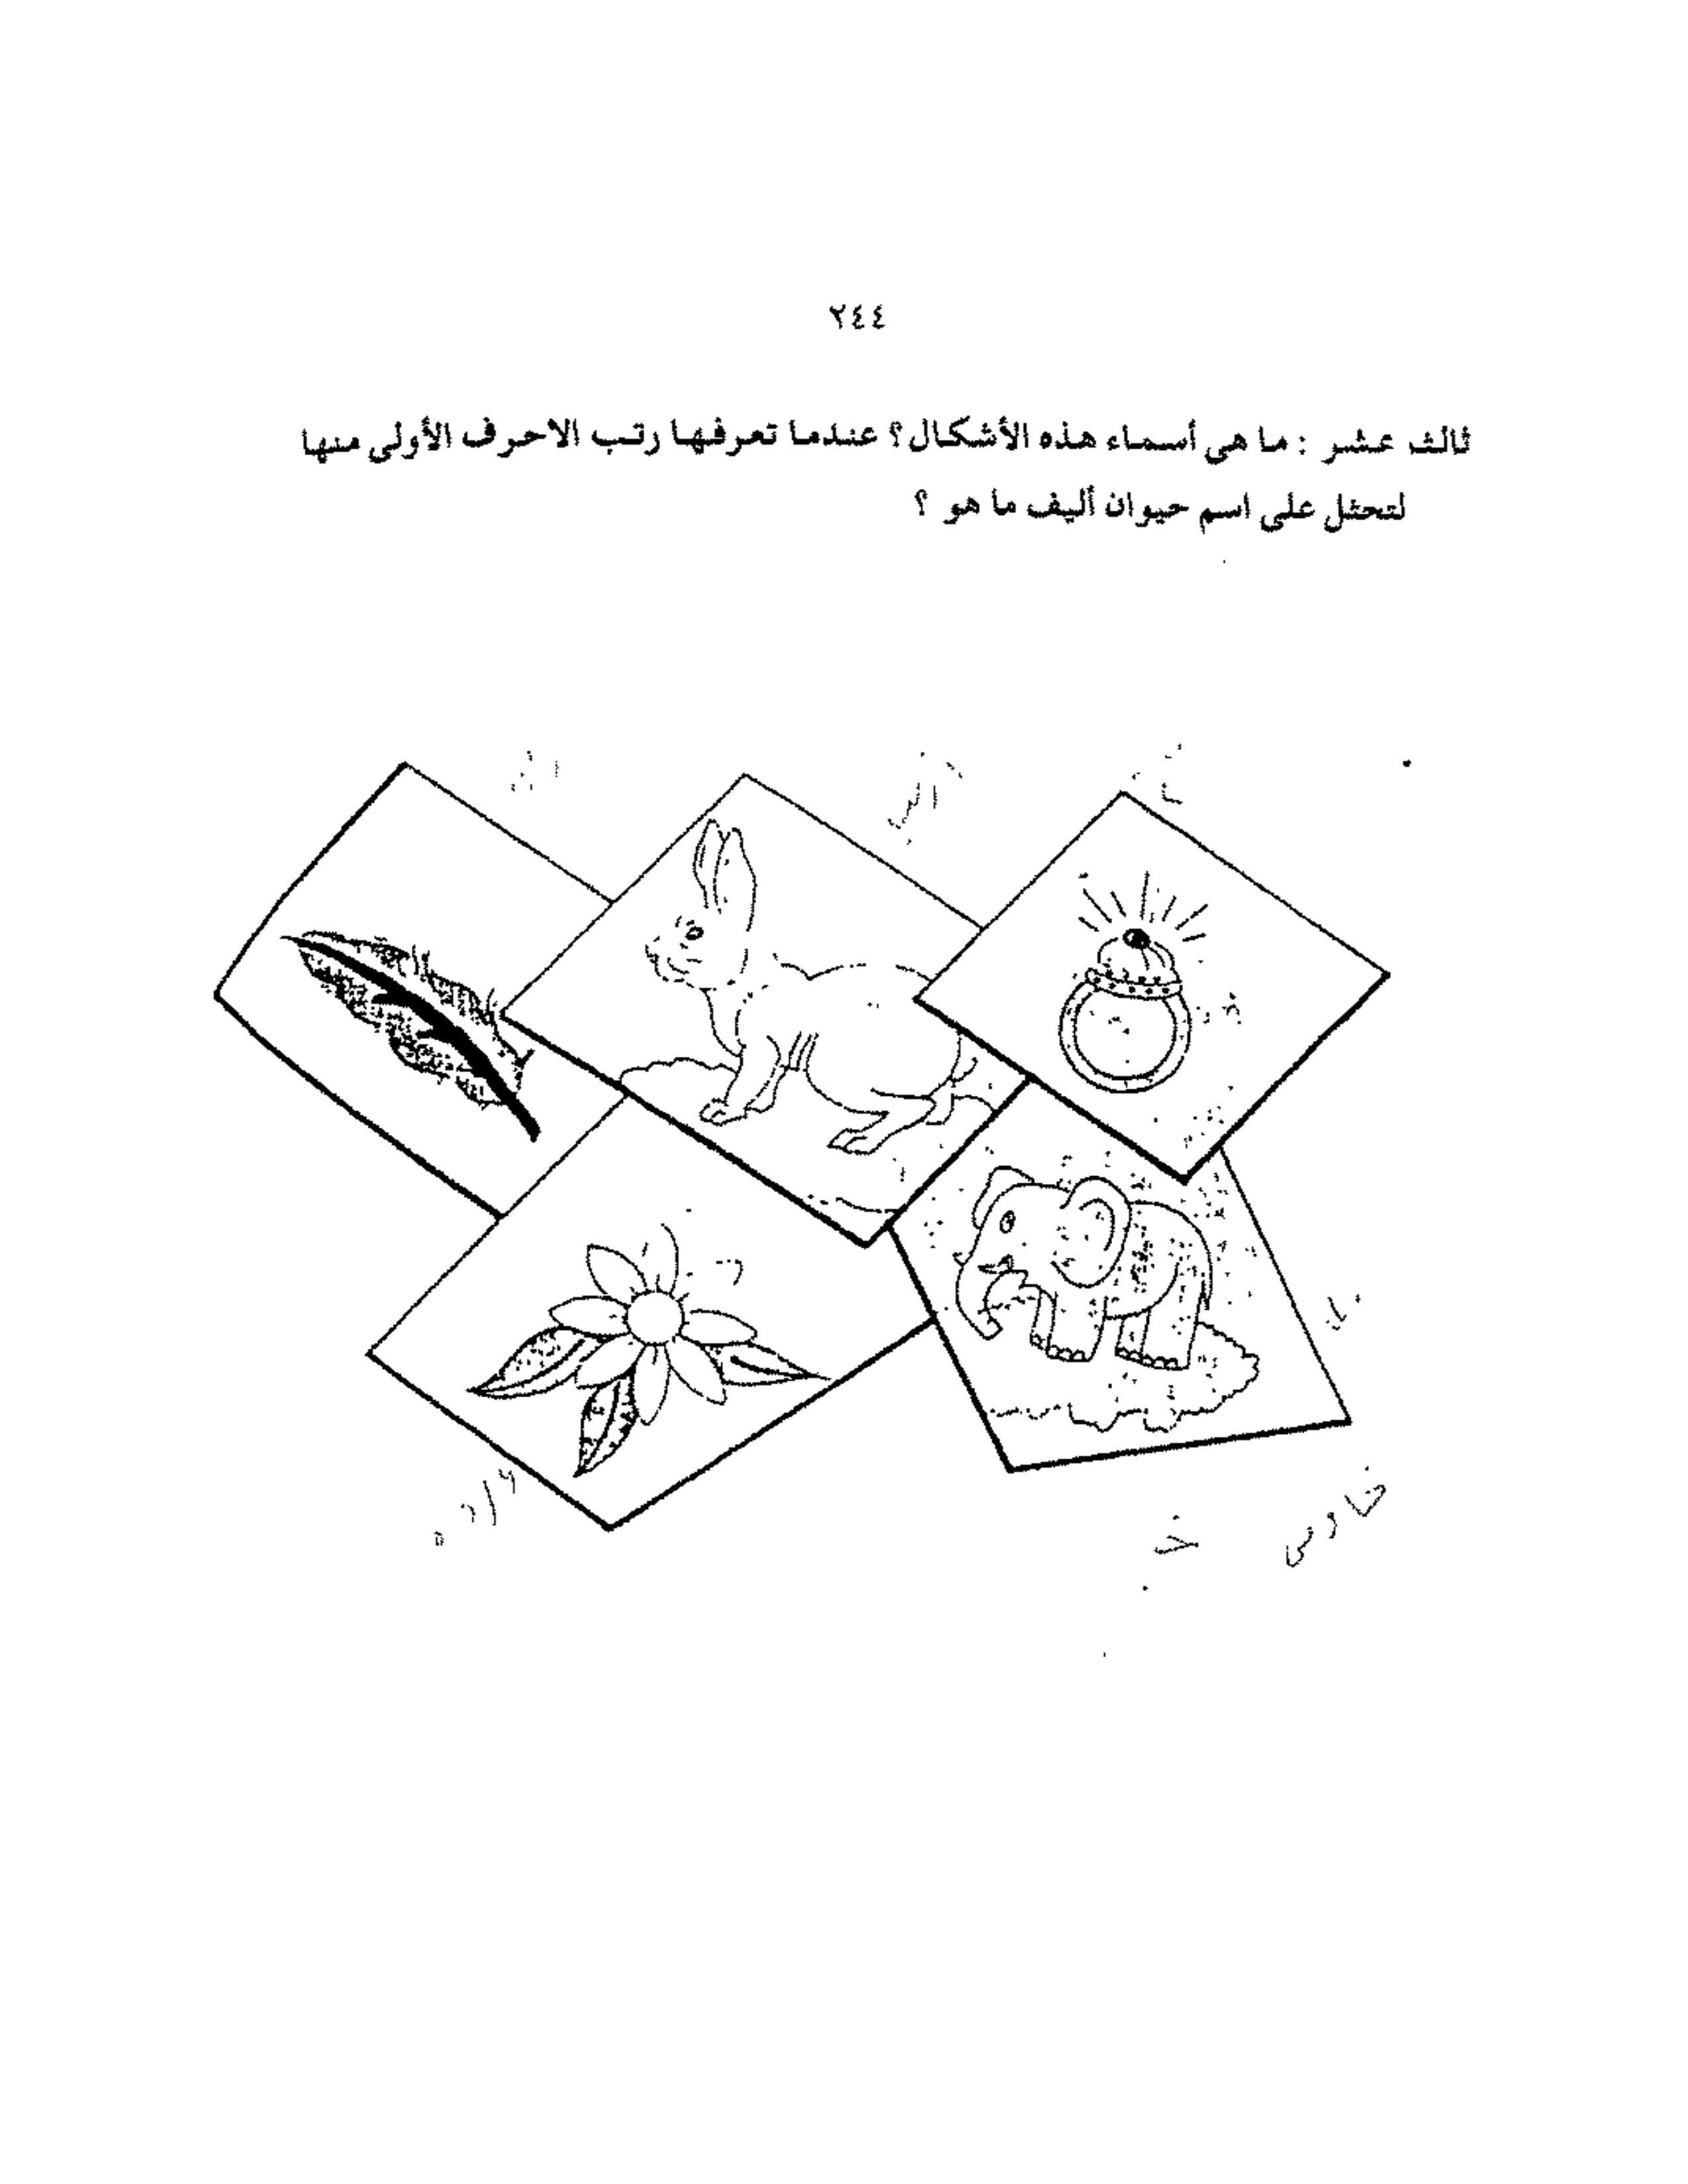 ٢٤٤
ثالث عشر : ما هى أسماء هذه الأشكال؟ عندما تعرفها رتب الاحرف الأولى منها
لتحثل على اسم حيوان أليف ما هو ؟